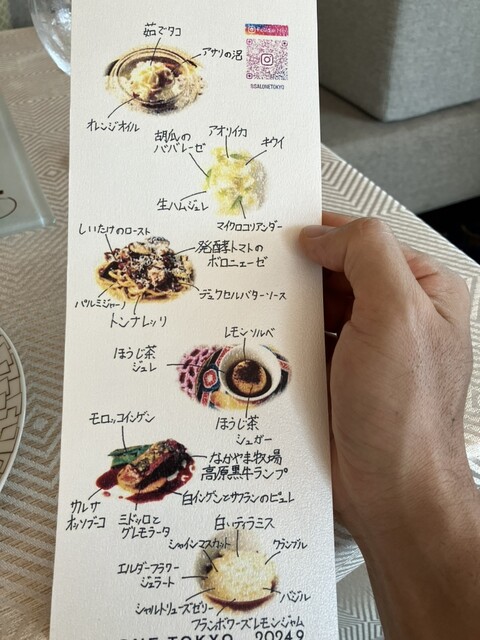 茹でタコ
アサリの泡
オレンジオイル
@SALONETOKYO
胡瓜の
ババレーゼ
アオリイカ
キウイ
生ハムジュレ
マイクロコリアンダー
しいたけのロースト
発酵トマトの
ボロニェーゼ
パルミジャーノ
トンナレッリ
デュクセルバターソース
レモンソルベ
ほうじ茶
ジュレ
ほうじ茶
シュガー
モロッコインゲン
なかやま牧場
高原黒牛ランプ
白インゲンとサフランのピュレ
サルサ
オッソブーコ
ミドッロと
グレモラータ
白いティラミス
シャインマスカット
クランブル
エルダーフラワー
ジェラート
バジル
シャルトリューズゼリー
フランボワーズレモンジャム
TOKYO 2024.9